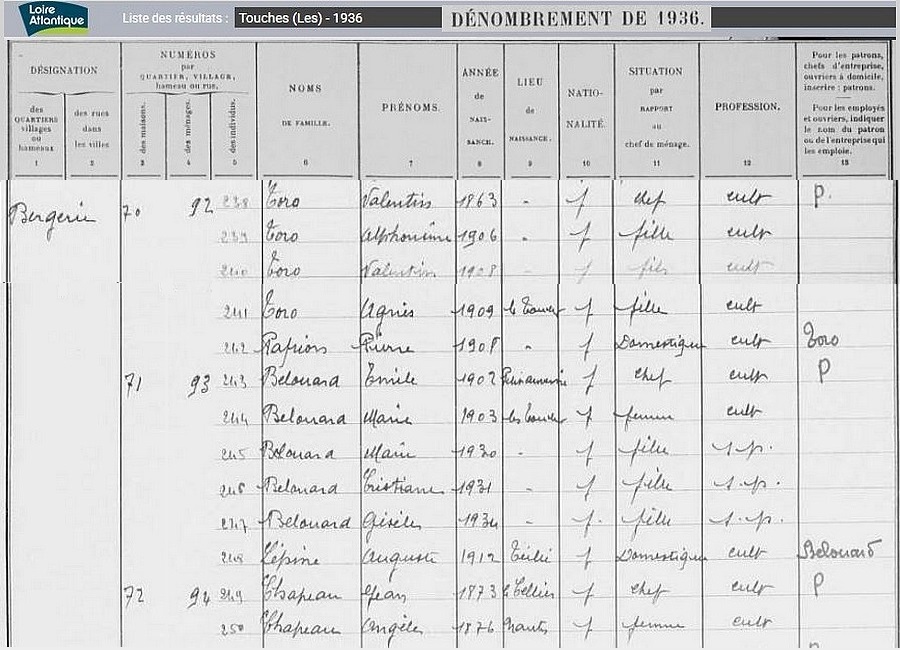 Loire Atlantique
Liste des résultats : Touches (Les) - 1936
DÉNOMBREMENT DE 1936.
DÉSIGNATION
des QUARTIERS villages ou hameaux
1
des rues dans les villes
2
NUMÉROS par QUARTIER, VILLAGE, hameau ou rue.
des maisons.
3
des ménages.
4
des individus.
5
NOMS DE FAMILLE.
6
PRÉNOMS.
7
ANNÉE de NAISSANCE.
8
LIEU de NAISSANCE.
9
NATIONALITÉ.
10
SITUATION par RAPPORT au chef de ménage.
11
PROFESSION.
12
Pour les patrons, chefs d'entreprise, ouvriers à domicile, inscrire : patrons.
Pour les employés et ouvriers, indiquer le nom du patron ou de l'entreprise qui les emploie.
13
Bergerie 70 92 238 Toro Valentin 1863 - f chef cult P.
239 Toro Alphonsine 1906 - f fille cult
240 Toro Valentin 1908 - f fils cult
241 Toro Agnès 1909 f fille cult
242 Pierre 1908 - f Domestique cult Toro
71 93 243 Belouard Emile 1902 f chef cult P
244 Belouard Marie 1903 les Touches f femme cult
245 Belouard Marie 1930 - f fille s.p.
246 Belouard Cristiane 1931 - f fille s.p.
247 Belouard Gisèle 1934 - f. fille s.p.
248 Lépine Auguste 1912 Teillé f Domestique cult Belouard
72 94 249 Chapeau Jean 1873 le Cellier f chef cult P
250 Chapeau Angèle 1876 Nantes f femme cult